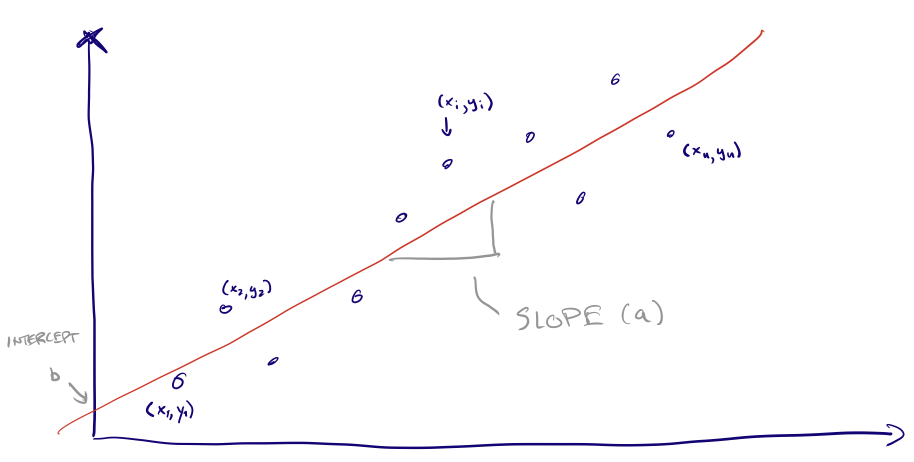 (xᵢ,yᵢ)
(xₙ,yₙ)
(x₂,y₂)
SLOPE (a)
INTERCEPT
b
(x₁,y₁)